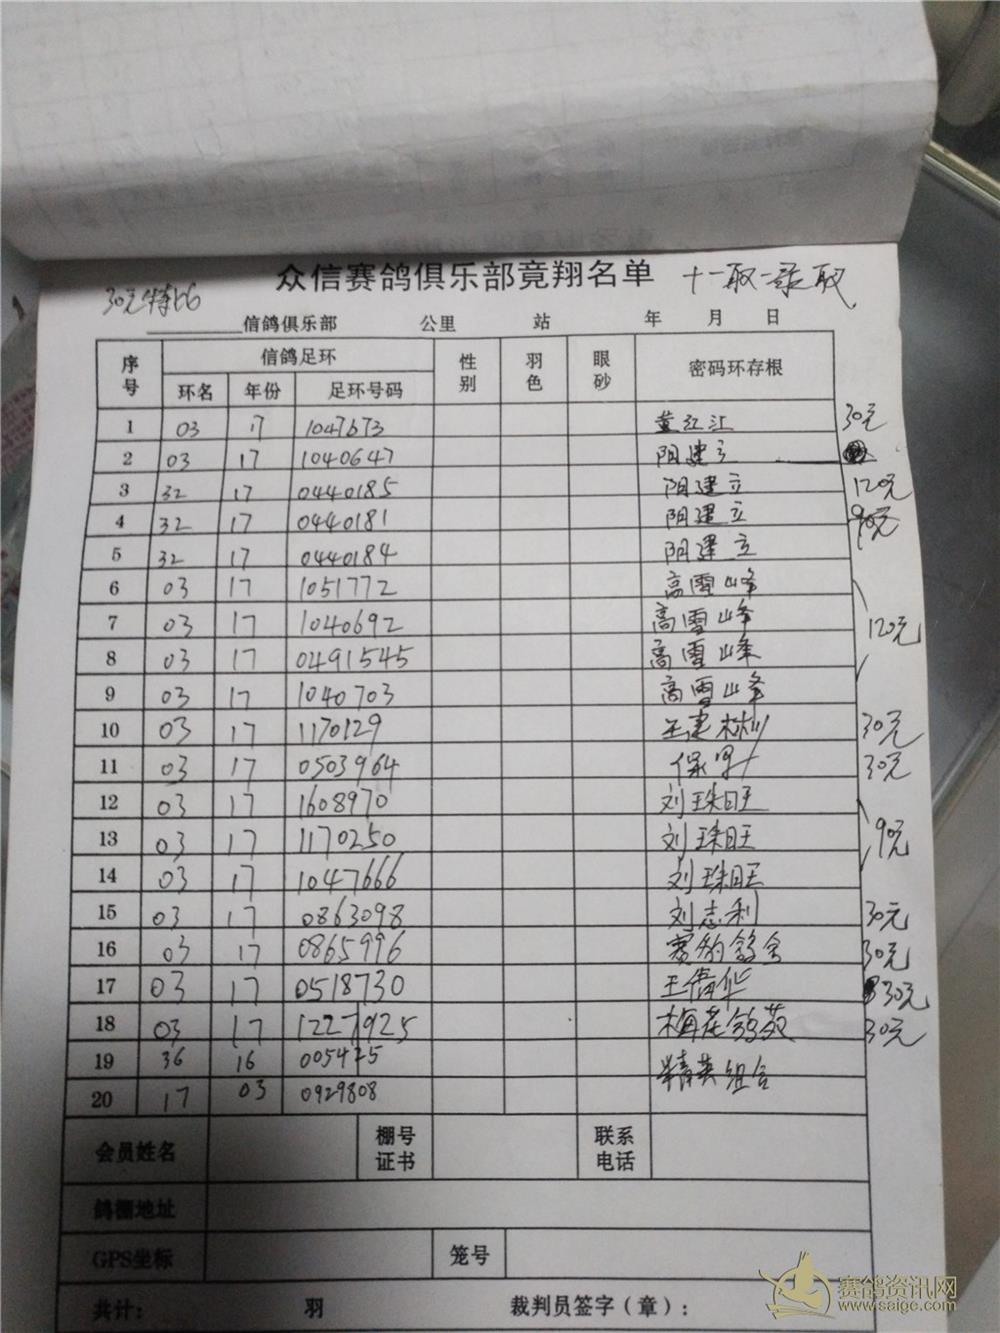 众信赛鸽俱乐部竟翔名单 十一取一录取
30元特比
信鸽俱乐部 公里 站 年 月 日
序号 信鸽足环 性别 羽色 眼砂 密码环存根
环名 年份 足环号码
1 03 17 1047673 黄红江 30元
2 03 17 1040647 阳建立
3 32 17 0440185 阳建立 120元
4 32 17 0440181 阳建立 90元
5 32 17 0440184 阳建立
6 03 17 1051772 高雪峰
7 03 17 1040692 高雪峰 120元
8 03 17 0491545 高雪峰
9 03 17 1040703 高雪峰
10 03 17 1170129 王建树 30元
11 03 17 0503964 保军 30元
12 03 17 1608970 刘珠旺
13 03 17 1170250 刘珠旺 90元
14 03 17 1047666 刘珠旺
15 03 17 0863098 刘志利 30元
16 03 17 0865996 赛豹鸽舍 30元
17 03 17 0518730 王倩华 30元
18 03 17 1227925 梅花鸽苑 30元
19 36 16 005475 精英组合
20 17 03 0929808
会员姓名 棚号证书 联系电话
鸽棚地址
GPS坐标 笼号
共计： 羽 裁判员签字（章）：
赛鸽资讯网
www.saige.com